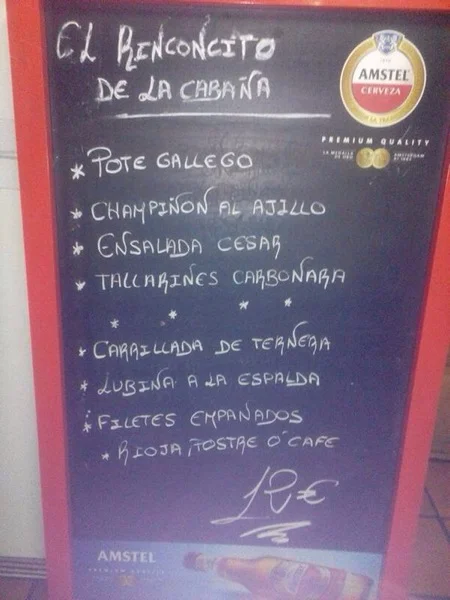 EL RINCONCITO
DE LA CABAÑA
AMSTEL
CERVEZA
PREMIUM QUALITY
* POTE GALLEGO
* CHAMPIÑON AL AJILLO
* ENSALADA CESAR
* TALLARINES CARBONARA
* * * *
* CARRILLADA DE TERNERA
* LUBINA A LA ESPALDA
* FILETES EMPANADOS
* RIOJA, TOSTRE O' CAFE
12€
AMSTEL
PREMIUM QUALITY